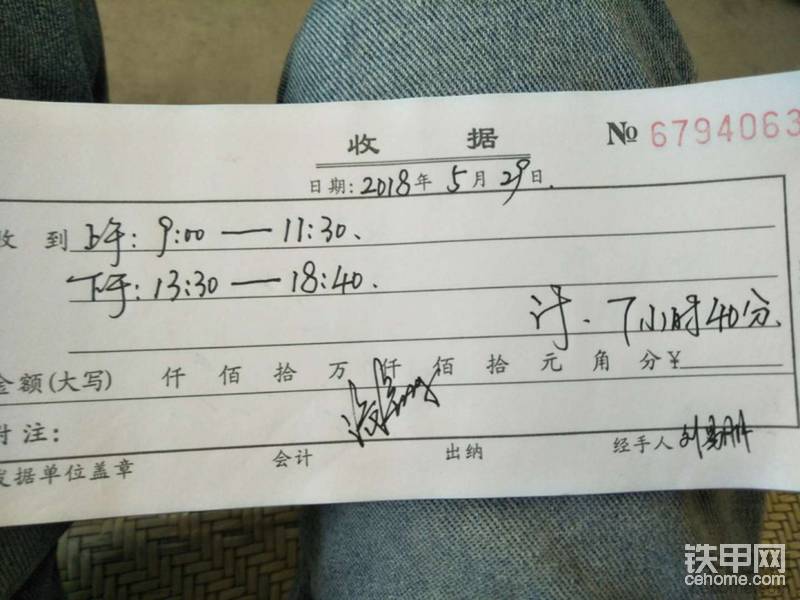 收 据 № 6794063
日期:2018年5月29日.
收 到 上午: 9:00 — 11:30、
下午: 13:30 — 18:40.
计、7小时40分
金额(大写) 仟 佰 拾 万 仟 佰 拾 元 角 分 ¥
附 注:
发据单位盖章 会计 出纳 经手人
铁甲网
cehome.com